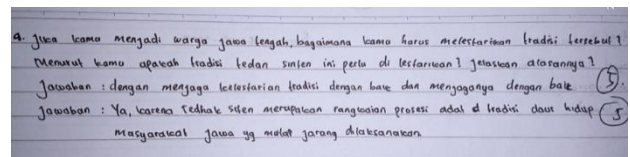 4. Jika kamu mengadi warga jawa tengah, bagaimana kamu harus melestarikan tradisi tersebut?
Menurut kamu apakah tradisi tedan sinten ini perlu di lestarikan? jelaskan alasannya?
Jawaban : dengan menjaga kelestarian tradisi dengan baik dan menjaganya dengan baik 5.
Jawaban : Ya, karena Tedhak siten merupakan rangkaian prosesi adat d tradisi daur hidup 5
Masyarakat Jawa yg mulai jarang dilaksanakan